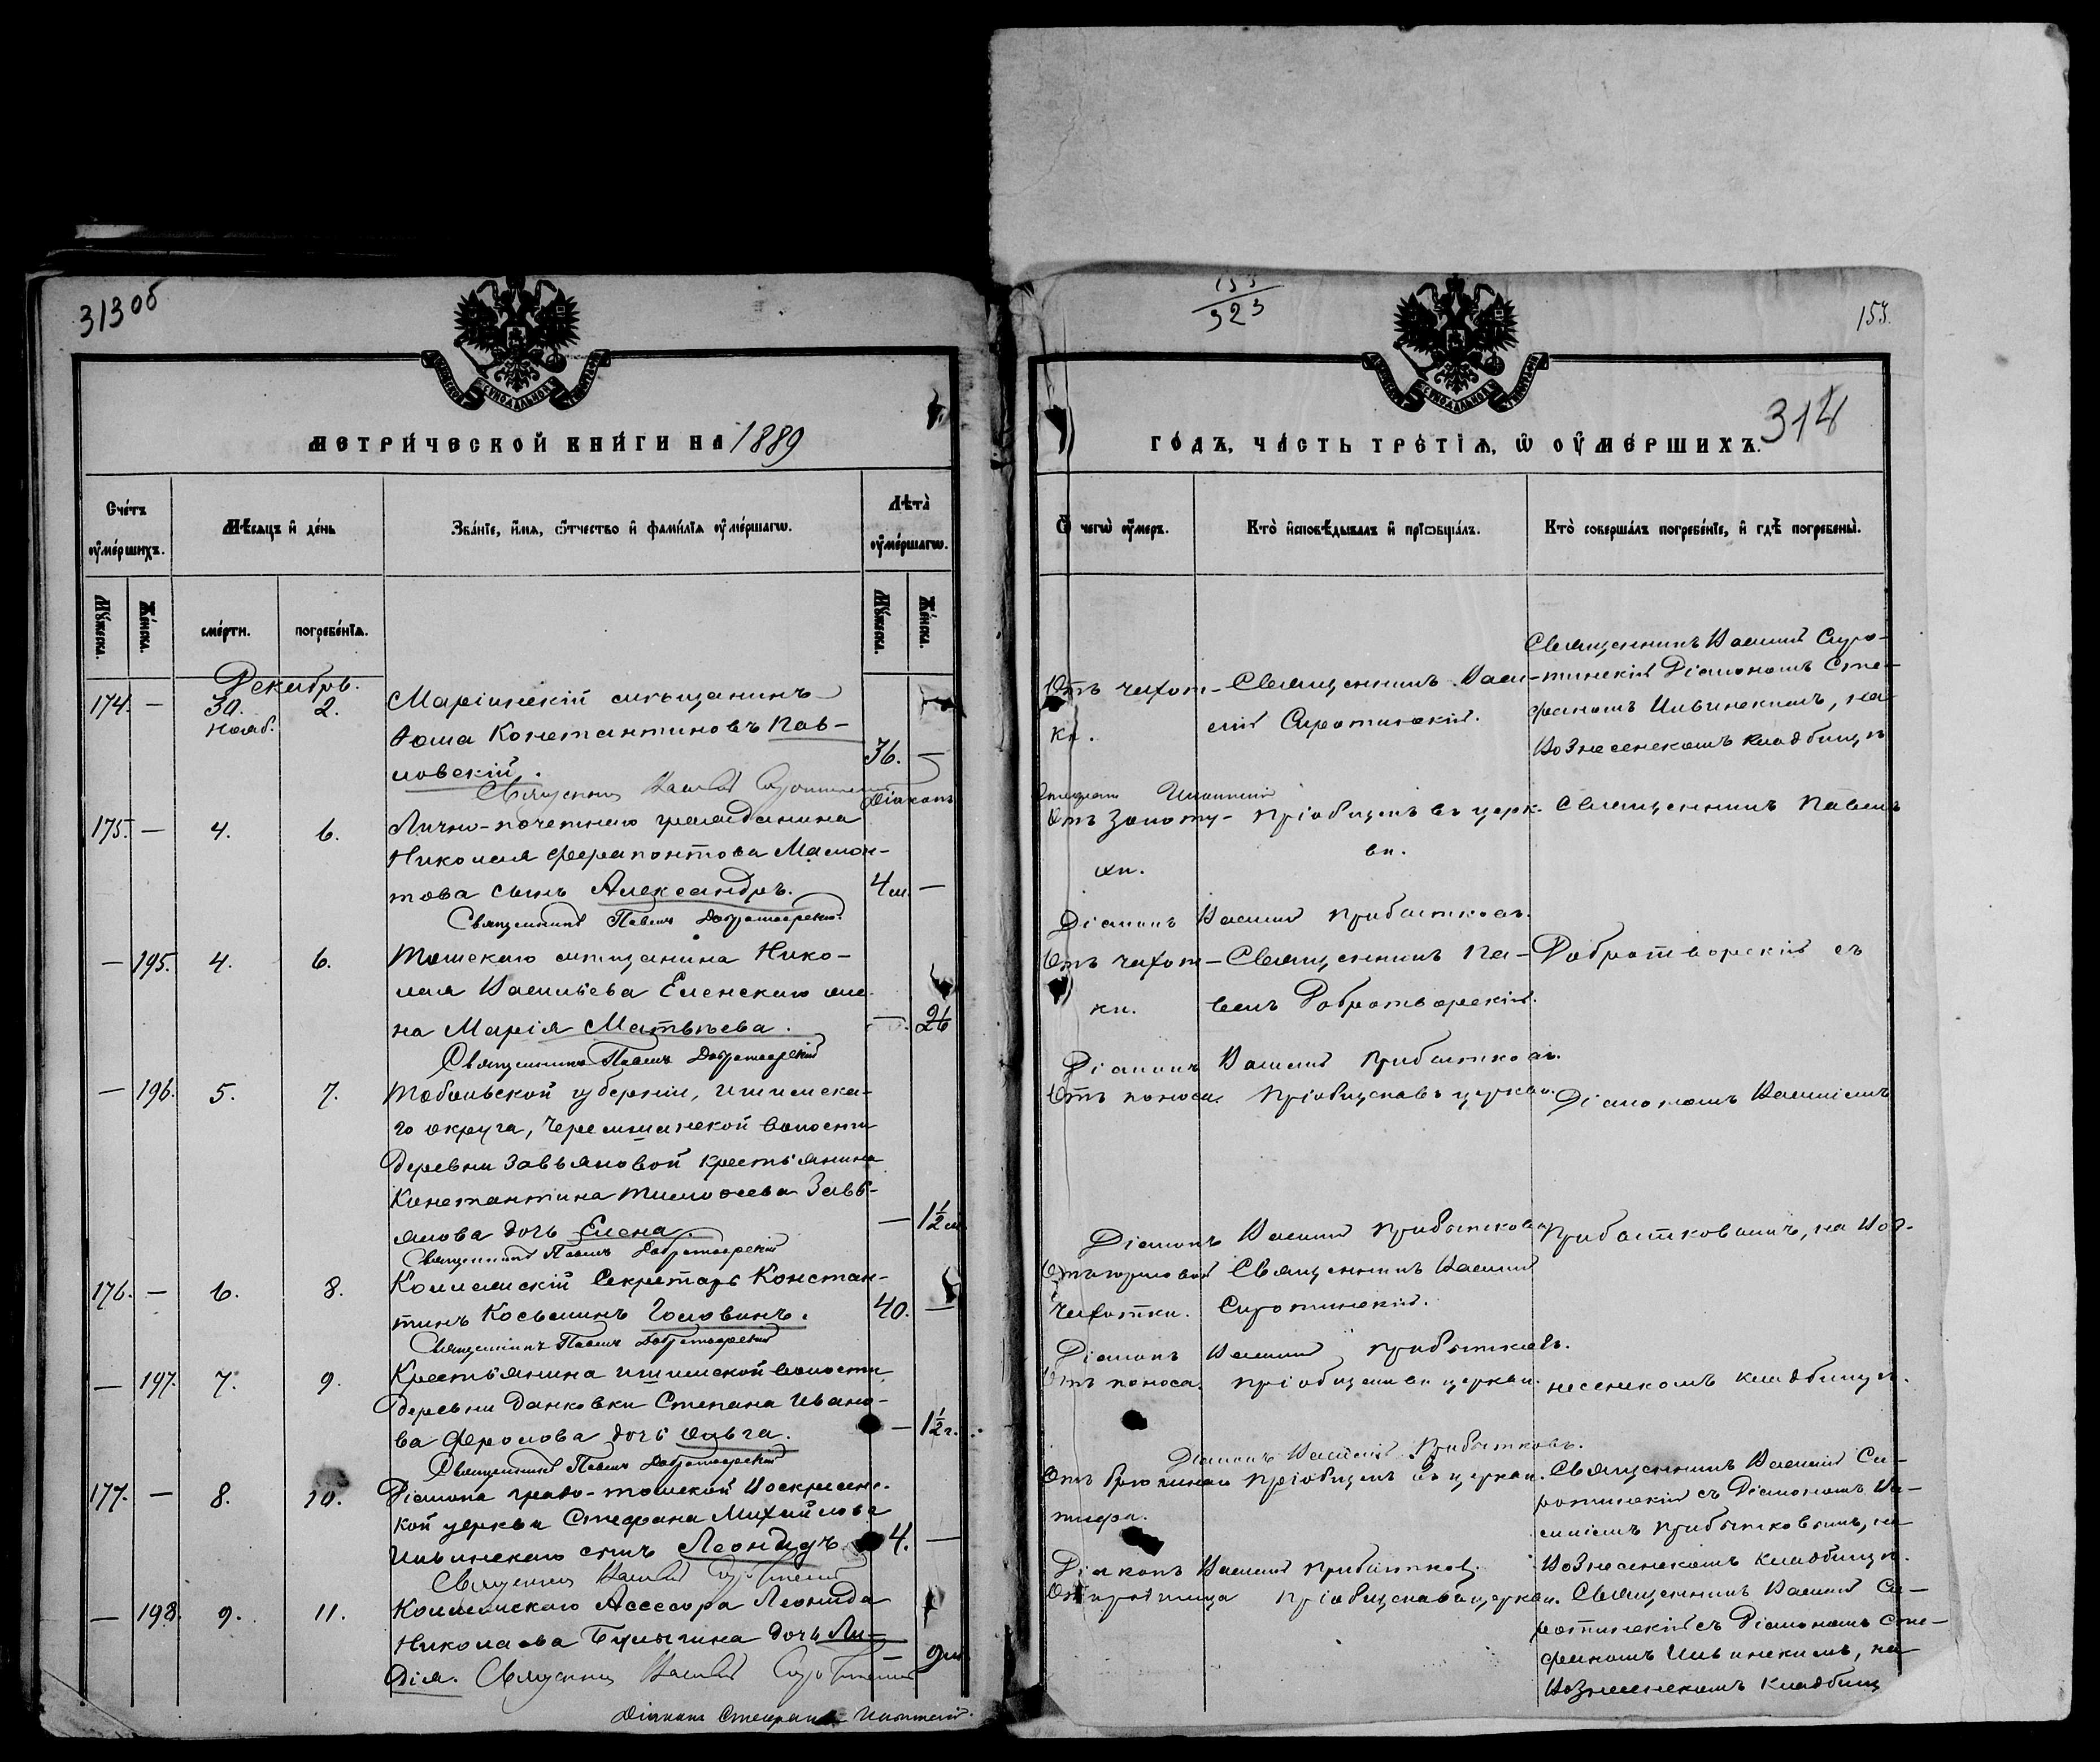 313 об
МЕТРИЧЕСКОЙ КНИГИ НА 1889
Счетъ умершихъ.
Мѣсяцъ и день
Званіе, имя, отчество и фамилія умершагѡ.
Лѣта умершагѡ.
Мужеска.
Женска.
смерти.
погребенія.
Мужеска.
Женска.
Декабрь.
174. — 30. Нояб. 2. Маріинскій мѣщанинъ
Ѳома Константиновъ Пав-
ловскій. 36. —
Священникъ Василій Сиротинскій
Діаконъ
175. — 4. 6. Лично-почетнаго гражданина
Николая Ферапонтова Мамон-
това сынъ Александръ. 4 м. —
Священникъ Павелъ Добротворскій
— 195. 4. 6. Томскаго мѣщанина Нико-
лая Васильева Еленскаго же-
на Марія Матвѣева. — 26
Священникъ Павелъ Добротворскій
— 196. 5. 7. Тобольской губерніи, Ишимска-
го округа, Черемшанской волости
деревни Завьяловой крестьянина
Константина Тимоѳеева Завь-
ялова дочь Елена. — 1½ м.
Священникъ Павелъ Добротворскій
176. — 6. 8. Коллежскій Секретарь Констан-
тинъ Косьминъ Головинъ. 40. —
Священникъ Павелъ Добротворскій
— 197. 7. 9. Крестьянина Ишимской волости
деревни Данковки Степана Ивано-
ва Фролова дочь Ольга. — 1½ г.
Священникъ Павелъ Добротворскій
177. — 8. 10. Діакона градо-томской Воскресенс-
кой церкви Стефана Михайлова
Ильинскаго сынъ Леонидъ. 4. —
Священникъ Василій Сиротинскій
— 198. 9. 11. Коллежскаго Асессора Леонида
Николаева Булыгина дочь Ли-
дія. — 9 м.
Священникъ Василій Сиротинскій
Діаконъ Стефанъ Ильинскій.
153
323
153.
314
ГОДЪ, ЧАСТЬ ТРЕТІЯ, Ѡ ОУМЕРШИХЪ.
Ѿ чегѡ умеръ.
Кто исповѣдывалъ и пріобщалъ.
Кто совершалъ погребеніе, и гдѣ погребены.
Отъ чахот-
ки.
Священникъ Васи-
лій Сиротинскій.
Священникъ Василій Сиро-
тинскій Діакономъ Сте-
фаномъ Ильинскимъ, на
Вознесенскомъ кладбищѣ
Стефанъ Ильинскій
Отъ золоту-
хи.
Пріобщенъ въ церк-
ви.
Священникъ Павелъ
Діаконъ Василій Прибытковъ.
Отъ чахот-
ки.
Священникъ Па-
велъ Добротворскій.
Добротворскій съ
Діаконъ Василій Прибытковъ.
Отъ поноса. Пріобщена въ церкви. Діакономъ Василіемъ
Діаконъ Василій Прибытковъ
Прибытковымъ, на Воз-
Отъ горловой
чахотки.
Священникъ Василій
Сиротинскій.
Діаконъ Василій Прибытковъ.
Отъ поноса. Пріобщена въ церкви. несенскомъ кладбищѣ.
Діаконъ Василій Прибытковъ.
Отъ брюшнаго
тифа.
Пріобщенъ въ церкви.
Священникъ Василій Си-
ротинскій съ Діакономъ Ва-
силіемъ Прибытковымъ, на
Вознесенскомъ кладбищѣ.
Діаконъ Василій Прибытковъ.
Пріобщена въ церкви.
Священникъ Василій Си-
ротинскій съ Діакономъ Сте-
фаномъ Ильинскимъ, на
Вознесенскомъ кладбищ